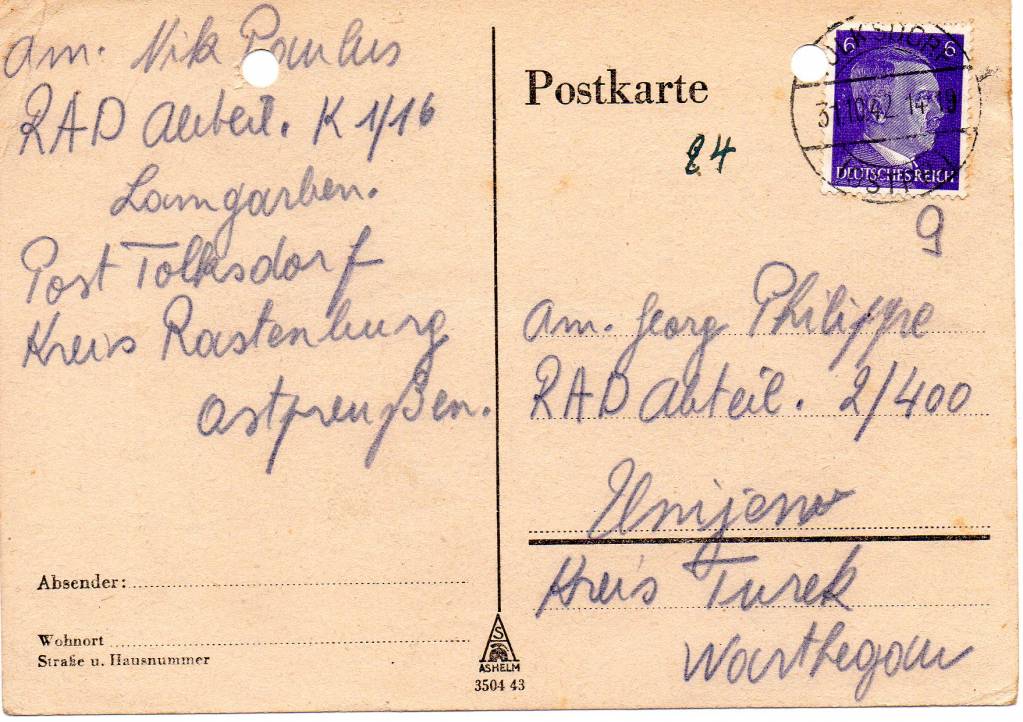 Am. Nik Paulus
RAD Abteil. K 1/16
Lamgarben.
Post Tolksdorf
Kreis Rastenburg
Ostpreußen.
Absender:
Wohnort
Straße u. Hausnummer
AS
ASHELM
3504 43
Postkarte
24
6 6
DEUTSCHES REICH
31.10.42. 14-19
9
Am. Georg Philippe
RAD Abteil. 2/400
Unijew
Kreis Turek
Warthegau